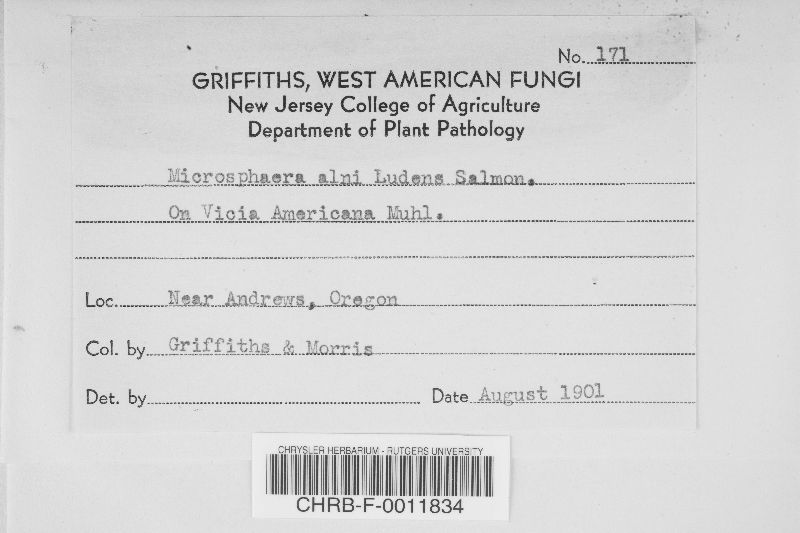 No. 171
GRIFFITHS, WEST AMERICAN FUNGI
New Jersey College of Agriculture
Department of Plant Pathology
Microsphaera alni Ludens Salmon.
On Vicia Americana Muhl.
Loc. Near Andrews, Oregon
Col. by Griffiths & Morris
Det. by
Date August 1901
CHRYSLER HERBARIUM - RUTGERS UNIVERSITY
CHRB-F-0011834